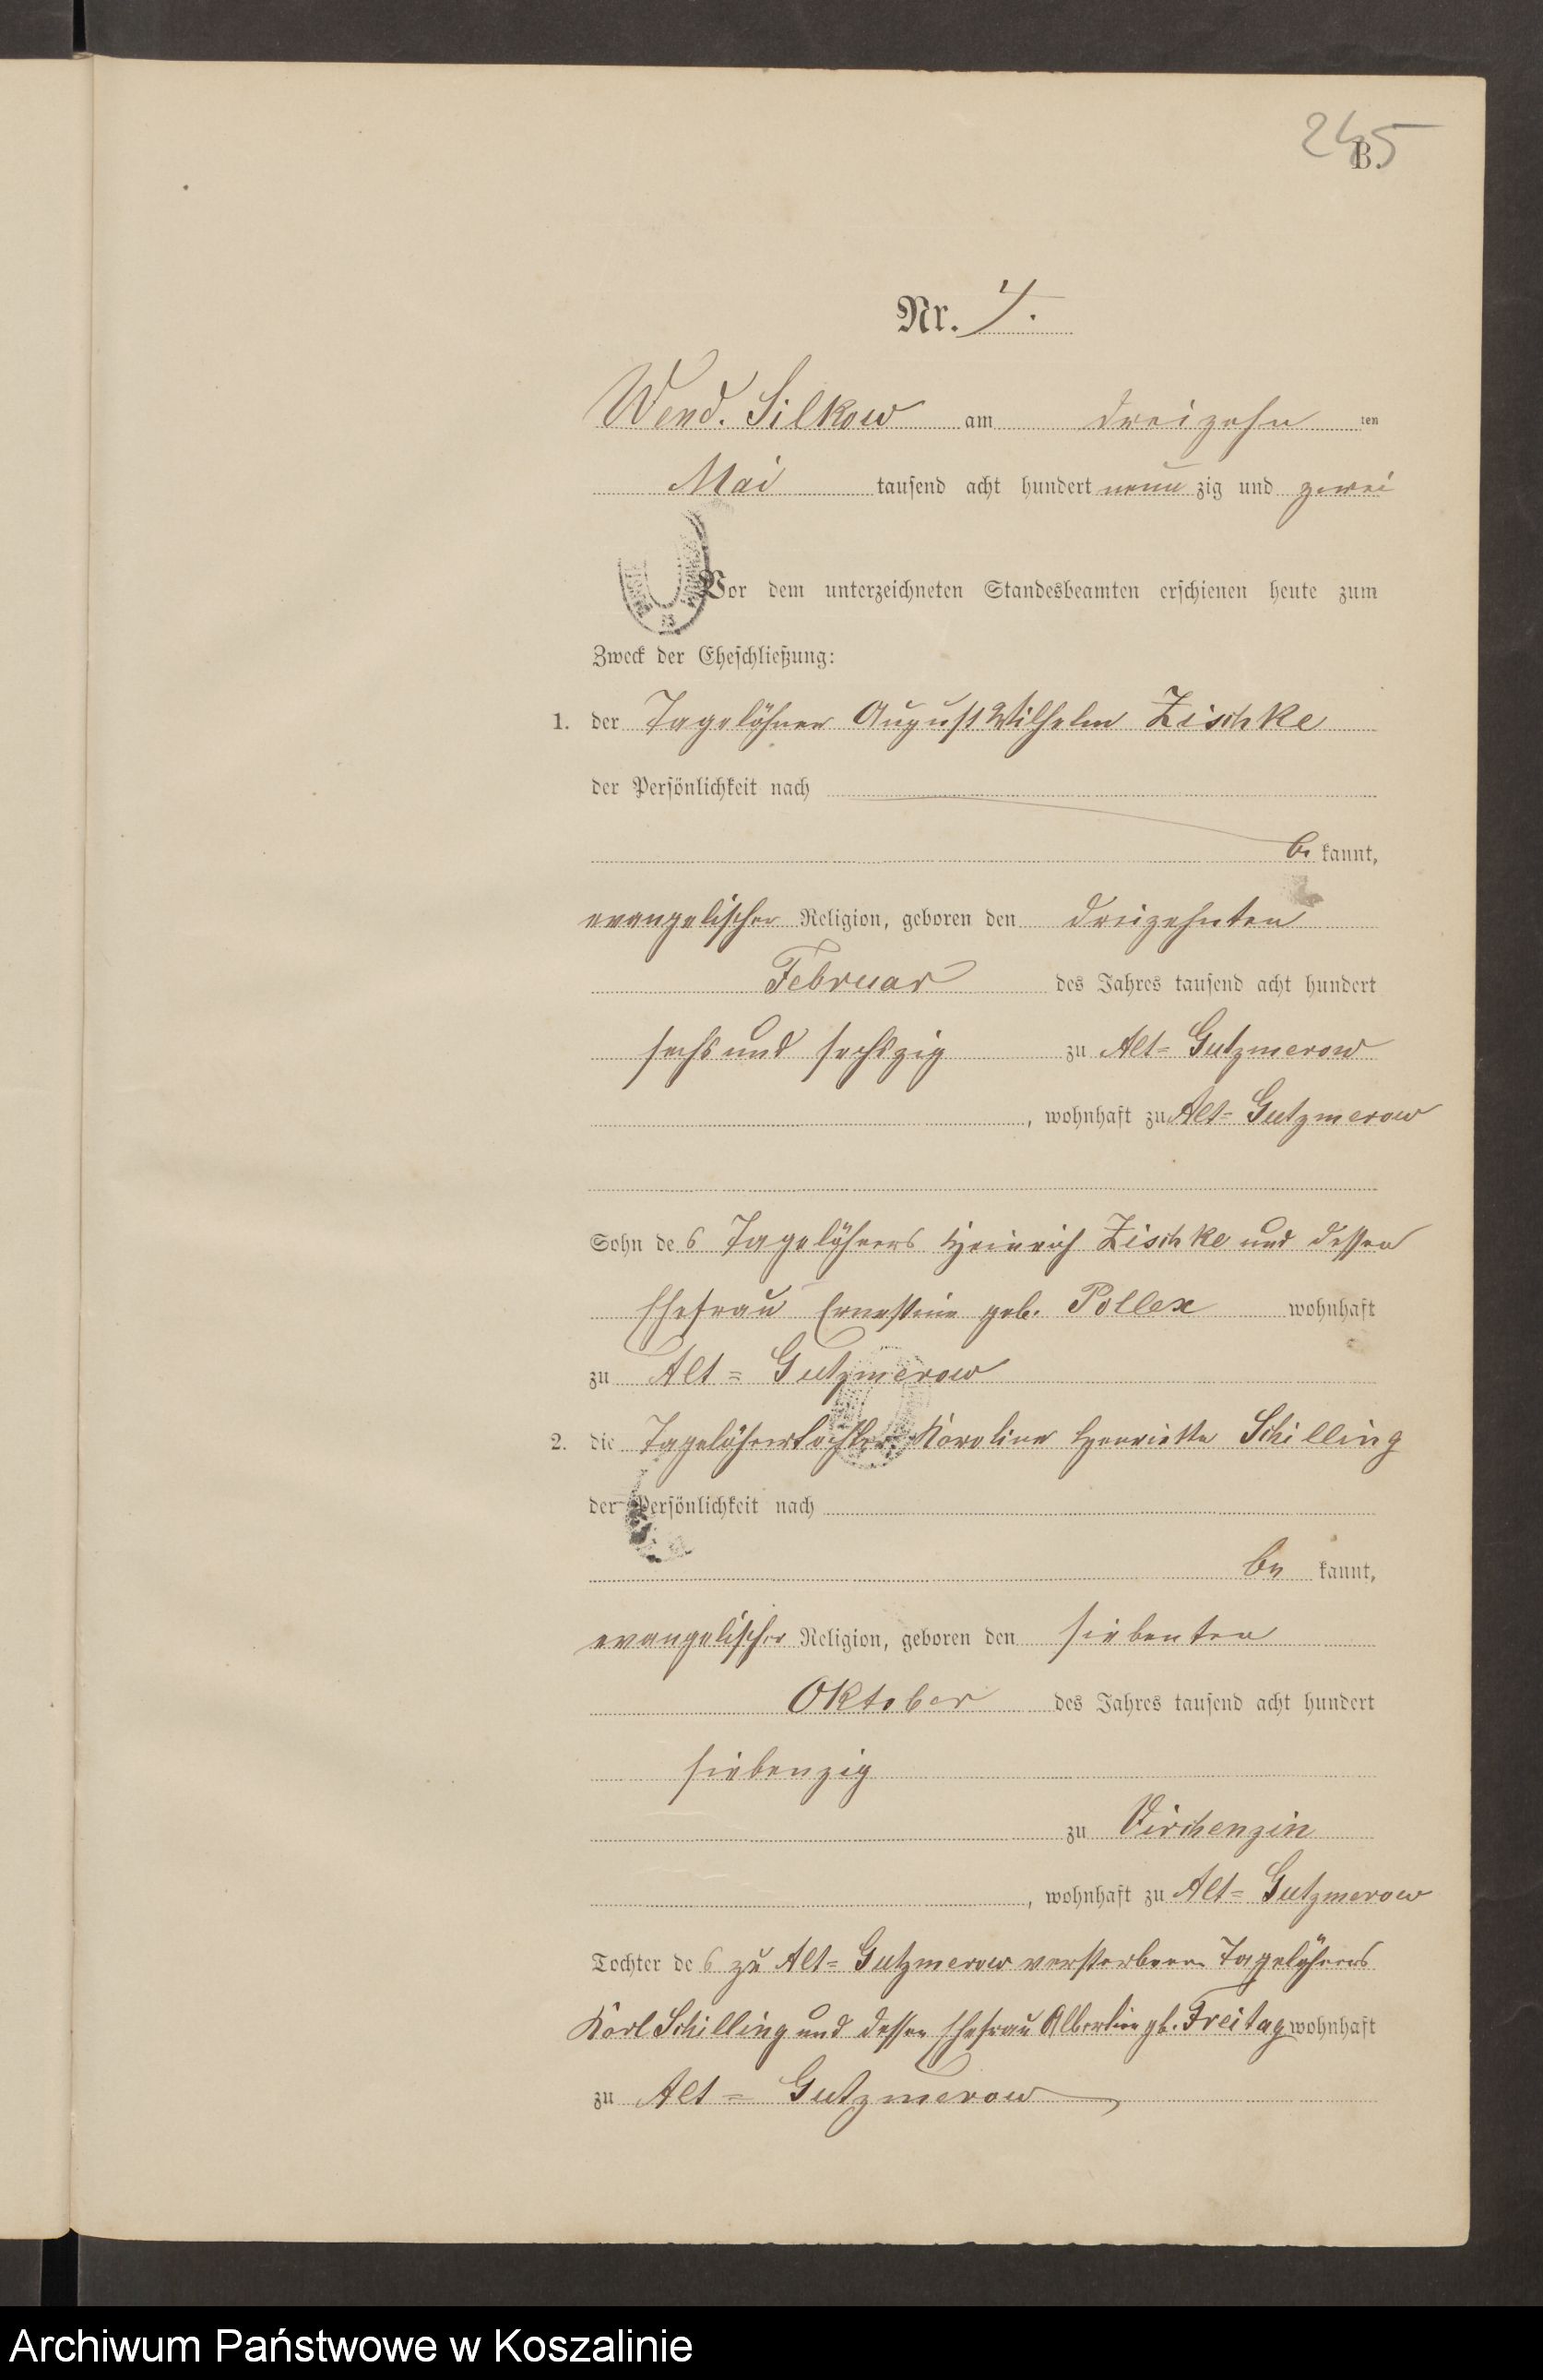 245
B.
Nr. 7.
Wend. Silkow am dreizehn ten
Mai tausend acht hundert neun zig und zwei
Vor dem unterzeichneten Standesbeamten erschienen heute zum
Zweck der Eheschließung:
1. der Tagelöhner August Wilhelm Zischke
der Persönlichkeit nach
be kannt,
evangelischer Religion, geboren den dreizehnten
Februar des Jahres tausend acht hundert
sechs und sechszig zu Alt=Gutzmerow
, wohnhaft zu Alt=Gutzmerow
Sohn des Tagelöhners Heinrich Zischke und dessen
Ehefrau Ernestine geb. Pollex wohnhaft
zu Alt=Gutzmerow
2. die Tagelöhnertochter Karoline Henriette Schilling
der Persönlichkeit nach
be kannt,
evangelischer Religion, geboren den siebenten
Oktober des Jahres tausend acht hundert
siebenzig
zu Virchenzin
, wohnhaft zu Alt=Gutzmerow
Tochter des zu Alt=Gutzmerow verstorbenen Tagelöhners
Karl Schilling und dessen Ehefrau Albertine gb. Freitag wohnhaft
zu Alt=Gutzmerow
Archiwum Państwowe w Koszalinie